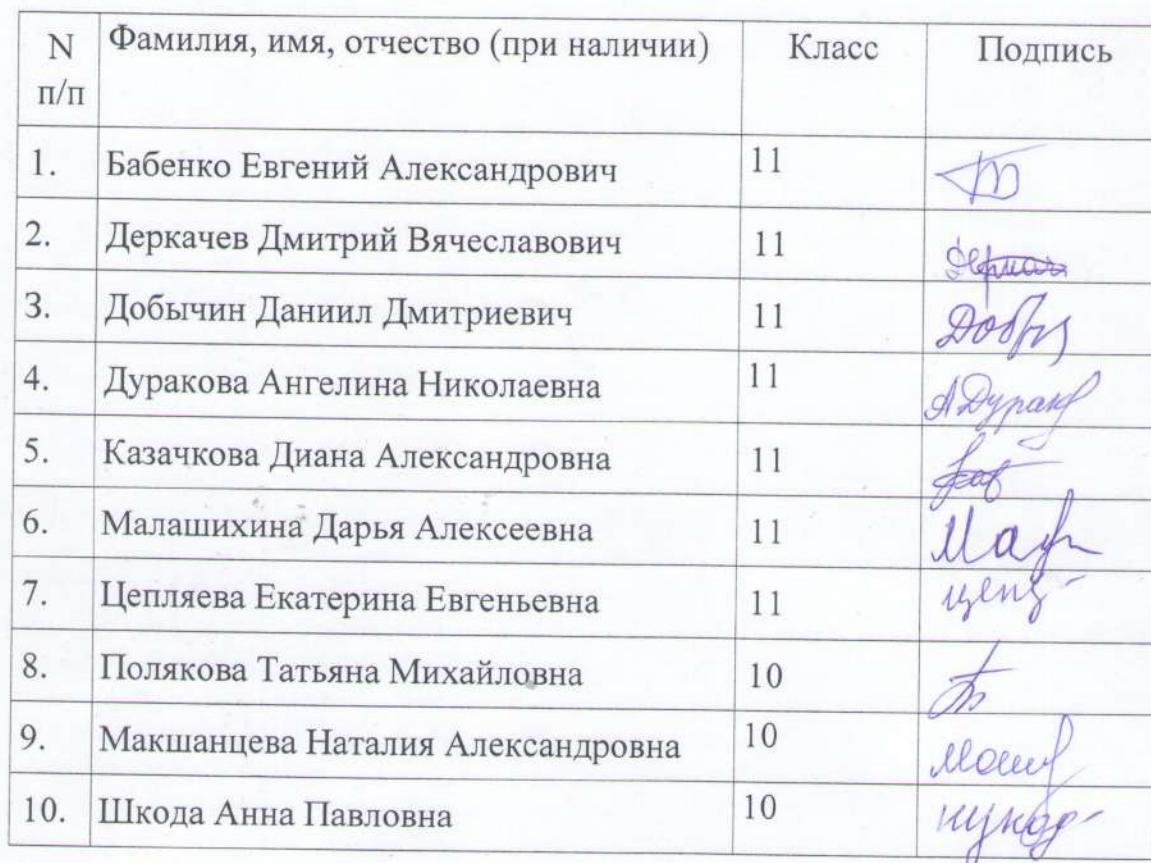 N п/п Фамилия, имя, отчество (при наличии) Класс Подпись
1. Бабенко Евгений Александрович 11
2. Деркачев Дмитрий Вячеславович 11
3. Добычин Даниил Дмитриевич 11
4. Дуракова Ангелина Николаевна 11
5. Казачкова Диана Александровна 11
6. Малашихина Дарья Алексеевна 11
7. Цепляева Екатерина Евгеньевна 11
8. Полякова Татьяна Михайловна 10
9. Макшанцева Наталия Александровна 10
10. Шкода Анна Павловна 10